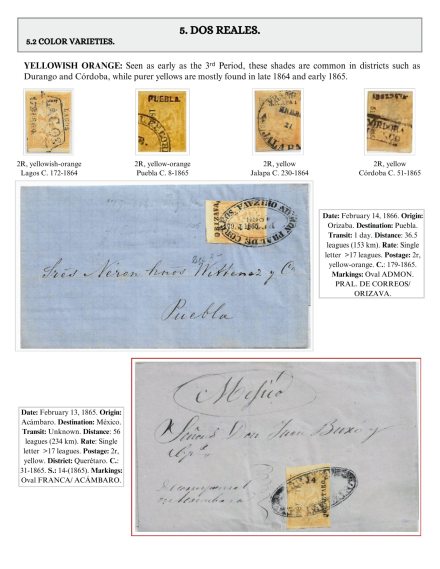 5. DOS REALES.
5.2 COLOR VARIETIES.
YELLOWISH ORANGE: Seen as early as the 3rd Period, these shades are common in districts such as
Durango and Córdoba, while purer yellows are mostly found in late 1864 and early 1865.
PUEBLA.
JALAPA
2R, yellowish-orange
Lagos C. 172-1864
2R, yellow-orange
Puebla C. 8-1865
2R, yellow
Jalapa C. 230-1864
2R, yellow
Córdoba C. 51-1865
ORIZAVA
Puebla
Date: February 14, 1866. Origin:
Orizaba. Destination: Puebla.
Transit: 1 day. Distance: 36.5
leagues (153 km). Rate: Single
letter >17 leagues. Postage: 2r,
yellow-orange. C.: 179-1865.
Markings: Oval ADMON.
PRAL. DE CORREOS/
ORIZAVA.
Date: February 13, 1865. Origin:
Acámbaro. Destination: México.
Transit: Unknown. Distance: 56
leagues (234 km). Rate: Single
letter >17 leagues. Postage: 2r,
yellow. District: Querétaro. C.:
31-1865. S.: 14-(1865). Markings:
Oval FRANCA/ ACÁMBARO.
Mejico
Señores Don Juan Buxo y
14
QUERETARO